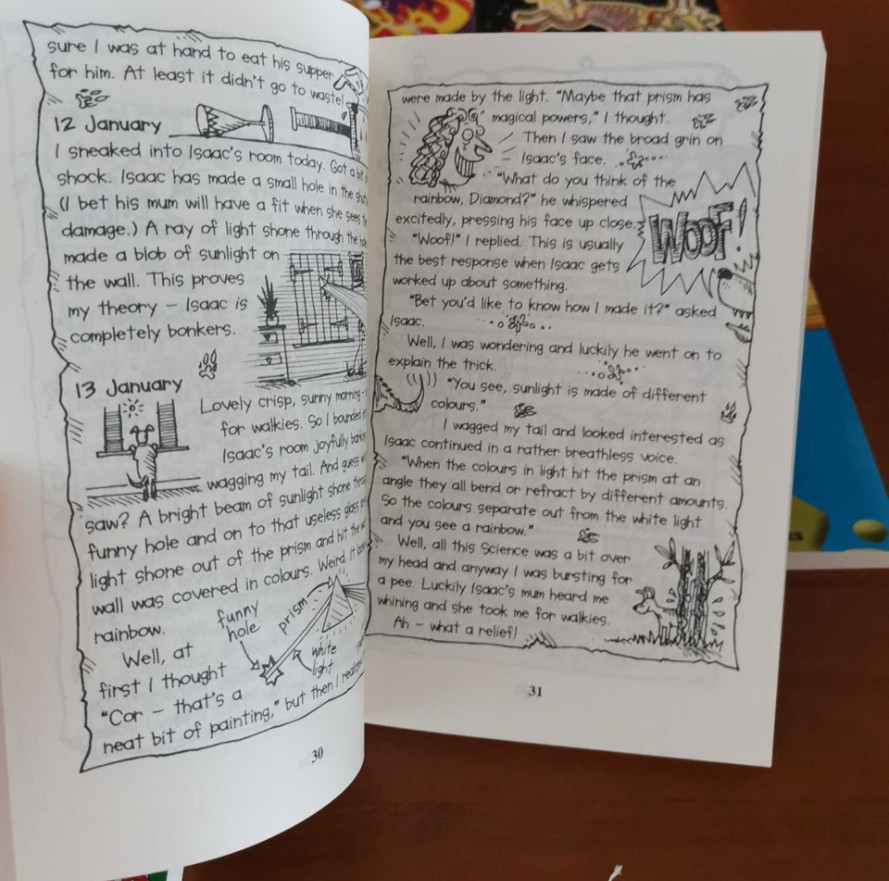 sure I was at hand to eat his supper
for him. At least it didn't go to waste!
12 January
I sneaked into Isaac's room today. Got a
shock. Isaac has made a small hole in the
(I bet his mum will have a fit when she sees
damage.) A ray of light shone through the
made a blob of sunlight on
the wall. This proves
my theory – Isaac is
completely bonkers.
13 January
Lovely crisp, sunny morning
for walkies. So I bounded
Isaac's room joyfully
wagging my tail. And guess
saw? A bright beam of sunlight shone
funny hole and on to that useless glass
light shone out of the prism and hit the
wall was covered in colours. Weird.
rainbow.
funny
hole
prism
white
light
Well, at
first I thought
"Cor – that's a
neat bit of painting," but then I
30
were made by the light. "Maybe that prism has
magical powers," I thought.
Then I saw the broad grin on
Isaac's face.
"What do you think of the
rainbow, Diamond?" he whispered
excitedly, pressing his face up close.
WOOF!
"Woof!" I replied. This is usually
the best response when Isaac gets
worked up about something.
"Bet you'd like to know how I made it?" asked
Isaac.
Well, I was wondering and luckily he went on to
explain the trick.
"You see, sunlight is made of different
colours."
I wagged my tail and looked interested as
Isaac continued in a rather breathless voice.
"When the colours in light hit the prism at an
angle they all bend or refract by different amounts.
So the colours separate out from the white light
and you see a rainbow."
Well, all this Science was a bit over
my head and anyway I was bursting for
a pee. Luckily Isaac's mum heard me
whining and she took me for walkies.
Ah – what a relief!
31